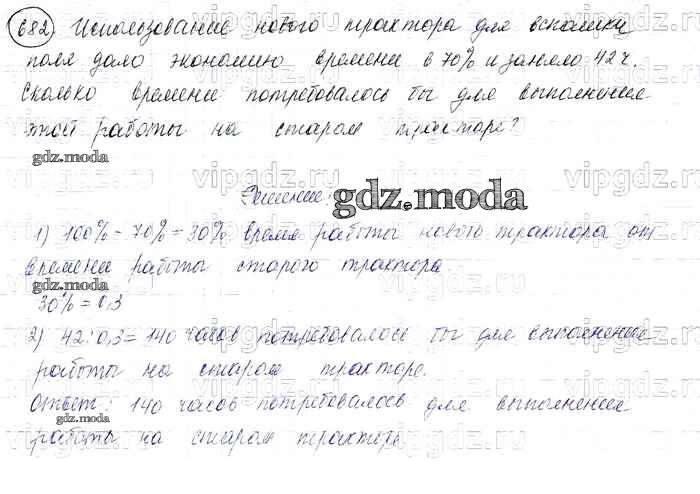 682 Использование нового трактора для вспашки
поля дало экономию времени в 70% и заняло 42 ч.
Сколько времени потребовалось бы для выполнения
этой работы на старом тракторе?
gdz.moda
Решение:
gdz.moda
1) 100% - 70% = 30% время работы нового трактора от
времени работы старого трактора
gdz.moda
30% = 0,3
2) 42 : 0,3 = 140 часов потребовалось бы для выполнения
работы на старом тракторе.
Ответ: 140 часов потребовалось для выполнения
gdz.moda
работы на старом тракторе
vipgdz.ru vipgdz.ru vipgdz.ru vipgdz.ru